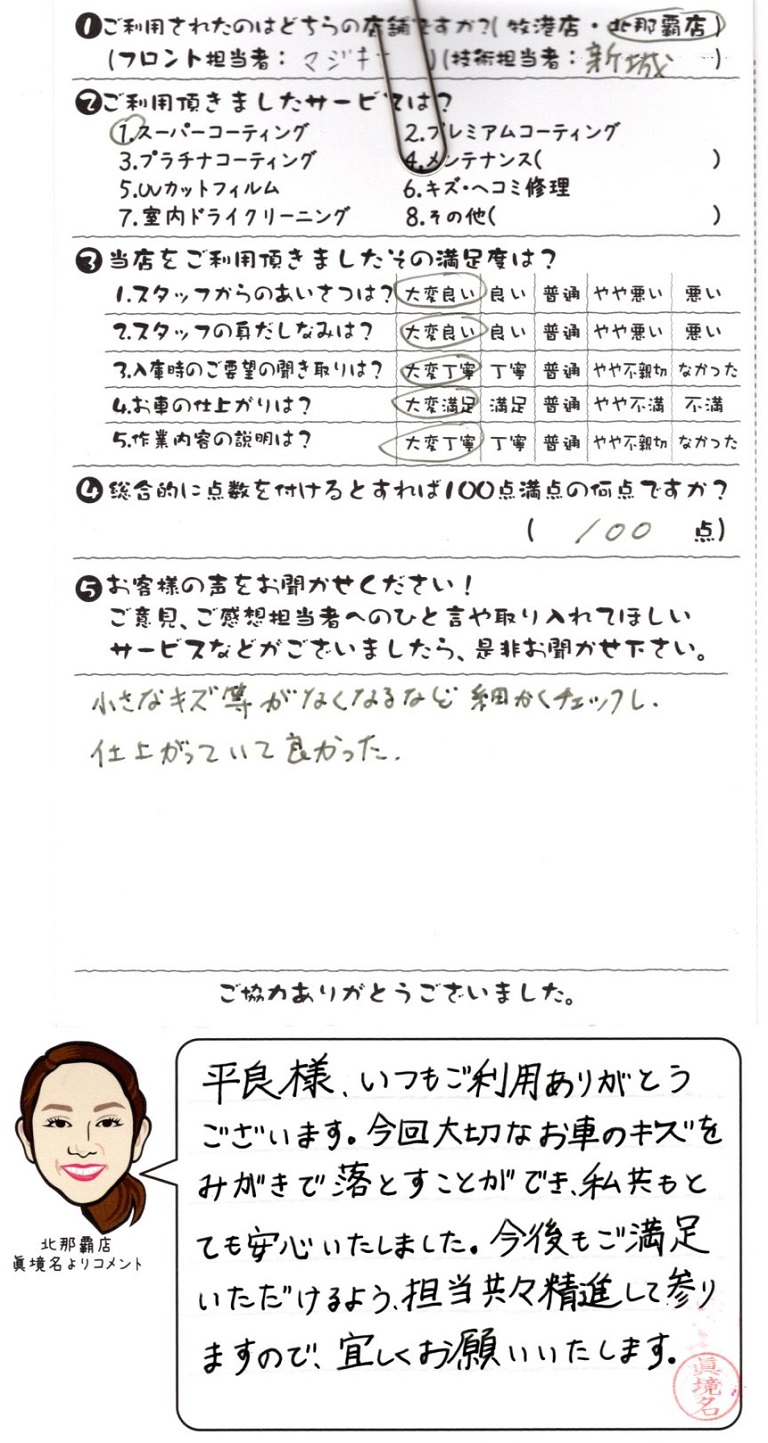 ❶ご利用されたのはどちらの店舗ですか?(牧港店・北那覇店)
(フロント担当者: マジキ )(技術担当者: 新城 )
❷ご利用頂きましたサービスは?
1.スーパーコーティング 2.プレミアムコーティング
3.プラチナコーティング 4.メンテナンス( )
5.UVカットフィルム 6.キズ・ヘコミ修理
7.室内ドライクリーニング 8.その他( )
❸当店をご利用頂きましたその満足度は?
1.スタッフからのあいさつは? 大変良い 良い 普通 やや悪い 悪い
2.スタッフの身だしなみは? 大変良い 良い 普通 やや悪い 悪い
3.入庫時のご要望の聞き取りは? 大変丁寧 丁寧 普通 やや不親切 なかった
4.お車の仕上がりは? 大変満足 満足 普通 やや不満 不満
5.作業内容の説明は? 大変丁寧 丁寧 普通 やや不親切 なかった
❹総合的に点数を付けるとすれば100点満点の何点ですか?
( 100 点)
❺お客様の声をお聞かせください!
ご意見、ご感想担当者へのひと言や取り入れてほしい
サービスなどがございましたら、是非お聞かせ下さい。
小さなキズ等がなくなるなど細かくチェックし、
仕上がっていて良かった.
ご協力ありがとうございました。
平良様、いつもご利用ありがとう
ございます。今回大切なお車のキズを
みがきで落とすことができ、私共もと
ても安心いたしました。今後もご満足
いただけるよう、担当共々精進して参り
ますので、宜しくお願いいたします。
北那覇店
眞境名よりコメント
眞境名